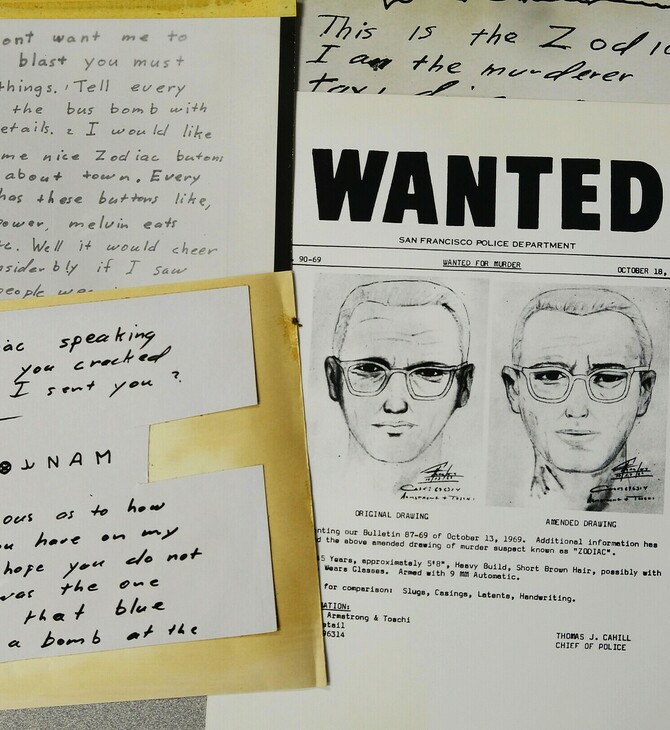 ont want me to
blast you must
things. Tell every
the bus bomb with
etails. 2 I would like
me nice Zodiac butons
about town. Every
has these buttons like,
power, melvin eats
Well it would cheer
nsiderbly if I saw
people
ac speaking
you cracked
I sent you ?
NAM
ous as to how
ou have on my
hope you do not
was the one
that blue
a bomb at the
This is the Zodia
I am the murderer
WANTED
SAN FRANCISCO POLICE DEPARTMENT
90-69 WANTED FOR MURDER OCTOBER 18,
ORIGINAL DRAWING AMENDED DRAWING
nting our Bulletin 87-69 of October 13, 1969. Additional information has
d the above amended drawing of murder suspect known as "ZODIAC".
5 Years, approximately 5'8", Heavy Build, Short Brown Hair, possibly with
Wears Glasses. Armed with 9 MM Automatic.
for comparison: Slugs, Casings, Latents, Handwriting.
ATION:
Armstrong & Toschi
etail
96314
THOMAS J. CAHILL
CHIEF OF POLICE